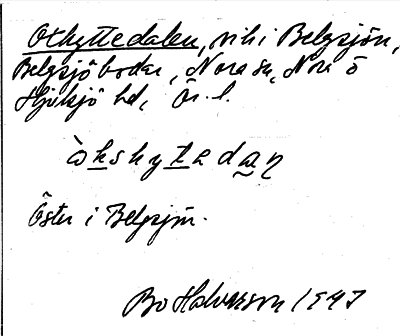 Oxhyttedalen, vik i Belgsjön,
Belgsjöboda, Nora sn, Nora o
Hjulsjö hd, Ör. l.
òkshytedaŋ
Öster i Belgsjön.
Bo Halvarson 1947